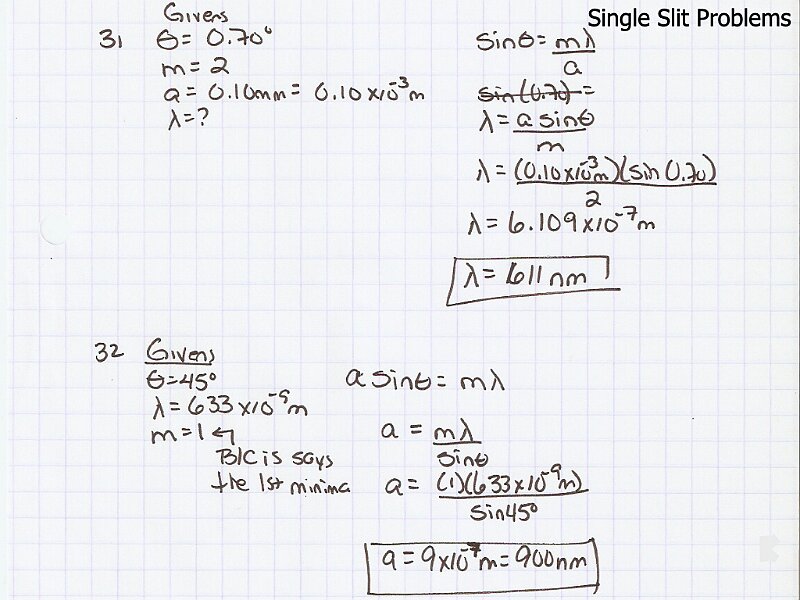 Single Slit Problems
31 Givens
θ = 0.70°
m = 2
a = 0.10mm = 0.10 x10⁻³ m
λ = ?
sinθ = mλ/a
sin(0.70) =
λ = a sinθ/m
λ = (0.10x10⁻³m)(sin 0.70)/2
λ = 6.109x10⁻⁷ m
λ = 611 nm
32 Givens
θ = 45°
λ = 633 x10⁻⁹ m
m = 1 ↵
B/C is says
the 1st minima
a sinθ = mλ
a = mλ/sinθ
a = (1)(633x10⁻⁹m)/sin45°
a = 9x10⁻⁷m = 900nm